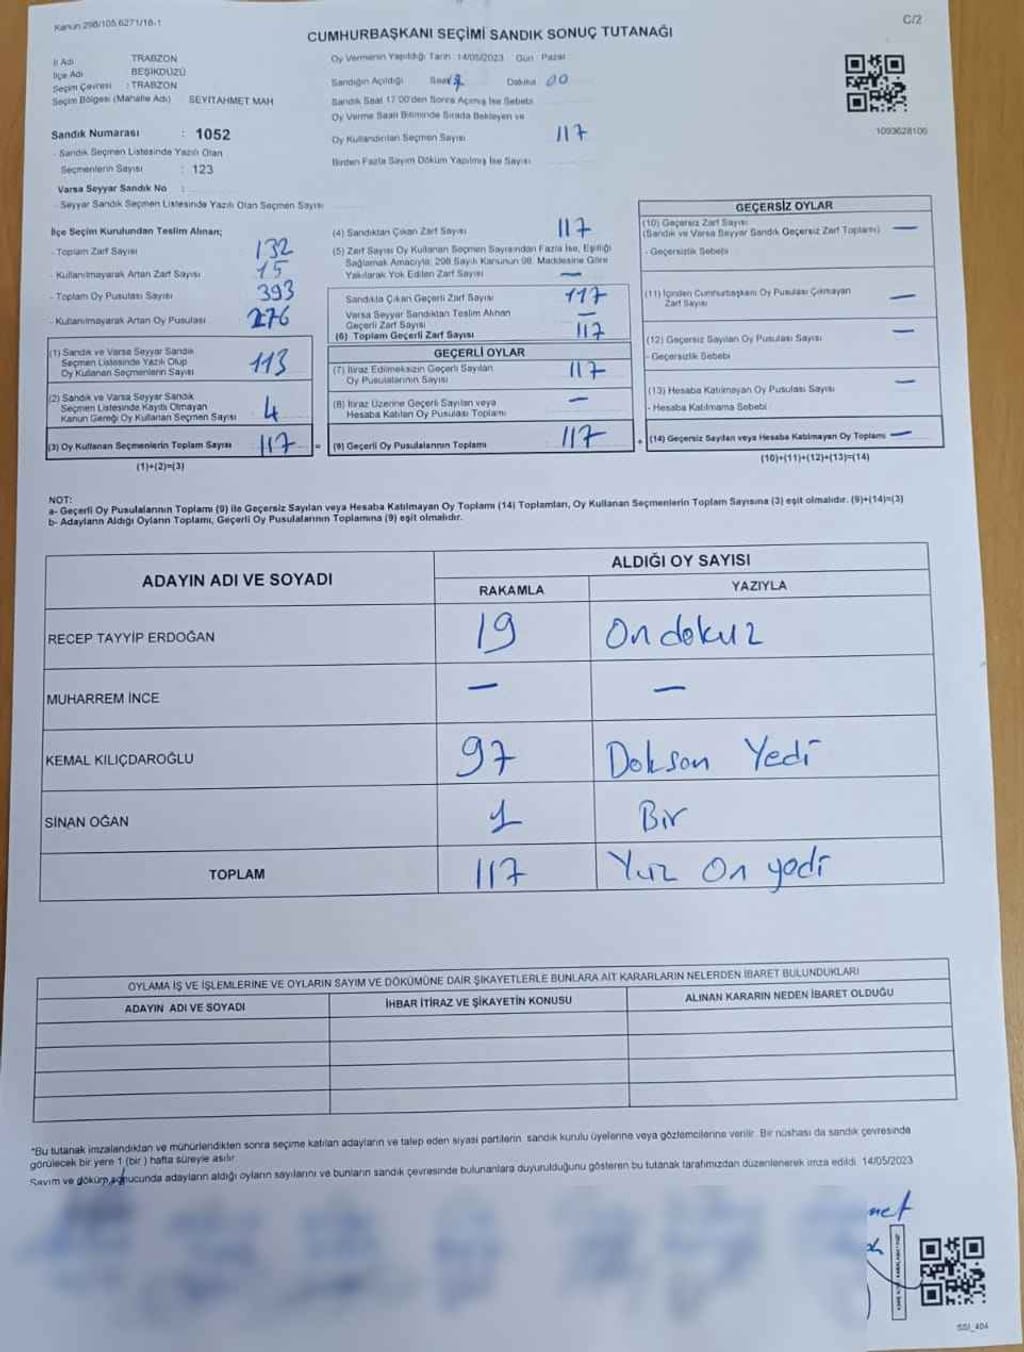 Kanun 298/105,6271/18-1
C/2
CUMHURBAŞKANI SEÇİMİ SANDIK SONUÇ TUTANAĞI
İl Adı TRABZON
İlçe Adı BEŞİKDÜZÜ
Seçim Çevresi : TRABZON
Seçim Bölgesi (Mahalle Adı) SEYİTAHMET MAH
Sandık Numarası : 1052
- Sandık Seçmen Listesinde Yazılı Olan
Seçmenlerin Sayısı : 123
Varsa Seyyar Sandık No :
- Seyyar Sandık Seçmen Listesinde Yazılı Olan Seçmen Sayısı
Oy Vermenin Yapıldığı Tarih 14/05/2023 Gün : Pazar
Sandığın Açıldığı Saat Dakika 00
Sandık Saat 17.00'den Sonra Açılmış İse Sebebi
Oy Verme Saati Bitiminde Sırada Bekleyen ve
Oy Kullandırılan Seçmen Sayısı 117
Birden Fazla Sayım Döküm Yapılmış İse Sayısı
1093628106
İlçe Seçim Kurulundan Teslim Alınan;
- Toplam Zarf Sayısı 132
- Kullanılmayarak Artan Zarf Sayısı 15
- Toplam Oy Pusulası Sayısı 393
- Kullanılmayarak Artan Oy Pusulası 276
(1) Sandık ve Varsa Seyyar Sandık
Seçmen Listesinde Yazılı Olup
Oy Kullanan Seçmenlerin Sayısı 113
(2) Sandık ve Varsa Seyyar Sandık
Seçmen Listesinde Kayıtlı Olmayan
Kanun Gereği Oy Kullanan Seçmen Sayısı 4
(3) Oy Kullanan Seçmenlerin Toplam Sayısı 117 =
(1)+(2)=(3)
(4) Sandıktan Çıkan Zarf Sayısı 117
(5) Zarf Sayısı Oy Kullanan Seçmen Sayısından Fazla İse, Eşitliği
Sağlamak Amacıyla; 298 Sayılı Kanunun 98. Maddesine Göre
Yakılarak Yok Edilen Zarf Sayısı —
Sandıkta Çıkan Geçerli Zarf Sayısı 117
Varsa Seyyar Sandıktan Teslim Alınan
Geçerli Zarf Sayısı —
(6) Toplam Geçerli Zarf Sayısı 117
GEÇERLİ OYLAR
(7) İtiraz Edilmeksizin Geçerli Sayılan
Oy Pusulalarının Sayısı 117
(8) İtiraz Üzerine Geçerli Sayılan veya
Hesaba Katılan Oy Pusulası Toplamı —
(9) Geçerli Oy Pusulalarının Toplamı 117 +
GEÇERSİZ OYLAR
(10) Geçersiz Zarf Sayısı
(Sandık ve Varsa Seyyar Sandık Geçersiz Zarf Toplamı) —
- Geçersizlik Sebebi
(11) İçinden Cumhurbaşkanı Oy Pusulası Çıkmayan
Zarf Sayısı —
(12) Geçersiz Sayılan Oy Pusulası Sayısı —
- Geçersizlik Sebebi
(13) Hesaba Katılmayan Oy Pusulası Sayısı —
- Hesaba Katılmama Sebebi
(14) Geçersiz Sayılan veya Hesaba Katılmayan Oy Toplamı —
(10)+(11)+(12)+(13)=(14)
NOT:
a- Geçerli Oy Pusulalarının Toplamı (9) ile Geçersiz Sayılan veya Hesaba Katılmayan Oy Toplamı (14) Toplamları, Oy Kullanan Seçmenlerin Toplam Sayısına (3) eşit olmalıdır. (9)+(14)=(3)
b- Adayların Aldığı Oyların Toplamı, Geçerli Oy Pusulalarının Toplamına (9) eşit olmalıdır.
ADAYIN ADI VE SOYADI
ALDIĞI OY SAYISI
RAKAMLA YAZIYLA
RECEP TAYYİP ERDOĞAN 19 On dokuz
MUHARREM İNCE — —
KEMAL KILIÇDAROĞLU 97 Dokson Yedi
SİNAN OĞAN 1 Bir
TOPLAM 117 Yuz On yedi
OYLAMA İŞ VE İŞLEMLERİNE VE OYLARIN SAYIM VE DÖKÜMÜNE DAİR ŞİKAYETLERLE BUNLARA AİT KARARLARIN NELERDEN İBARET BULUNDUKLARI
ADAYIN ADI VE SOYADI İHBAR İTİRAZ VE ŞİKAYETİN KONUSU ALINAN KARARIN NEDEN İBARET OLDUĞU
*Bu tutanak imzalandıktan ve mühürlendikten sonra seçime katılan adayların ve talep eden siyasi partilerin sandık kurulu üyelerine veya gözlemcilerine verilir. Bir nüshası da sandık çevresinde
görülecek bir yere 1 (bir ) hafta süreyle asılır.
Sayım ve döküm sonucunda adayların aldığı oyların sayılarını ve bunların sandık çevresinde bulunanlara duyurulduğunu gösteren bu tutanak tarafımızdan düzenlenerek imza edildi. 14/05/2023
met
SSI_404